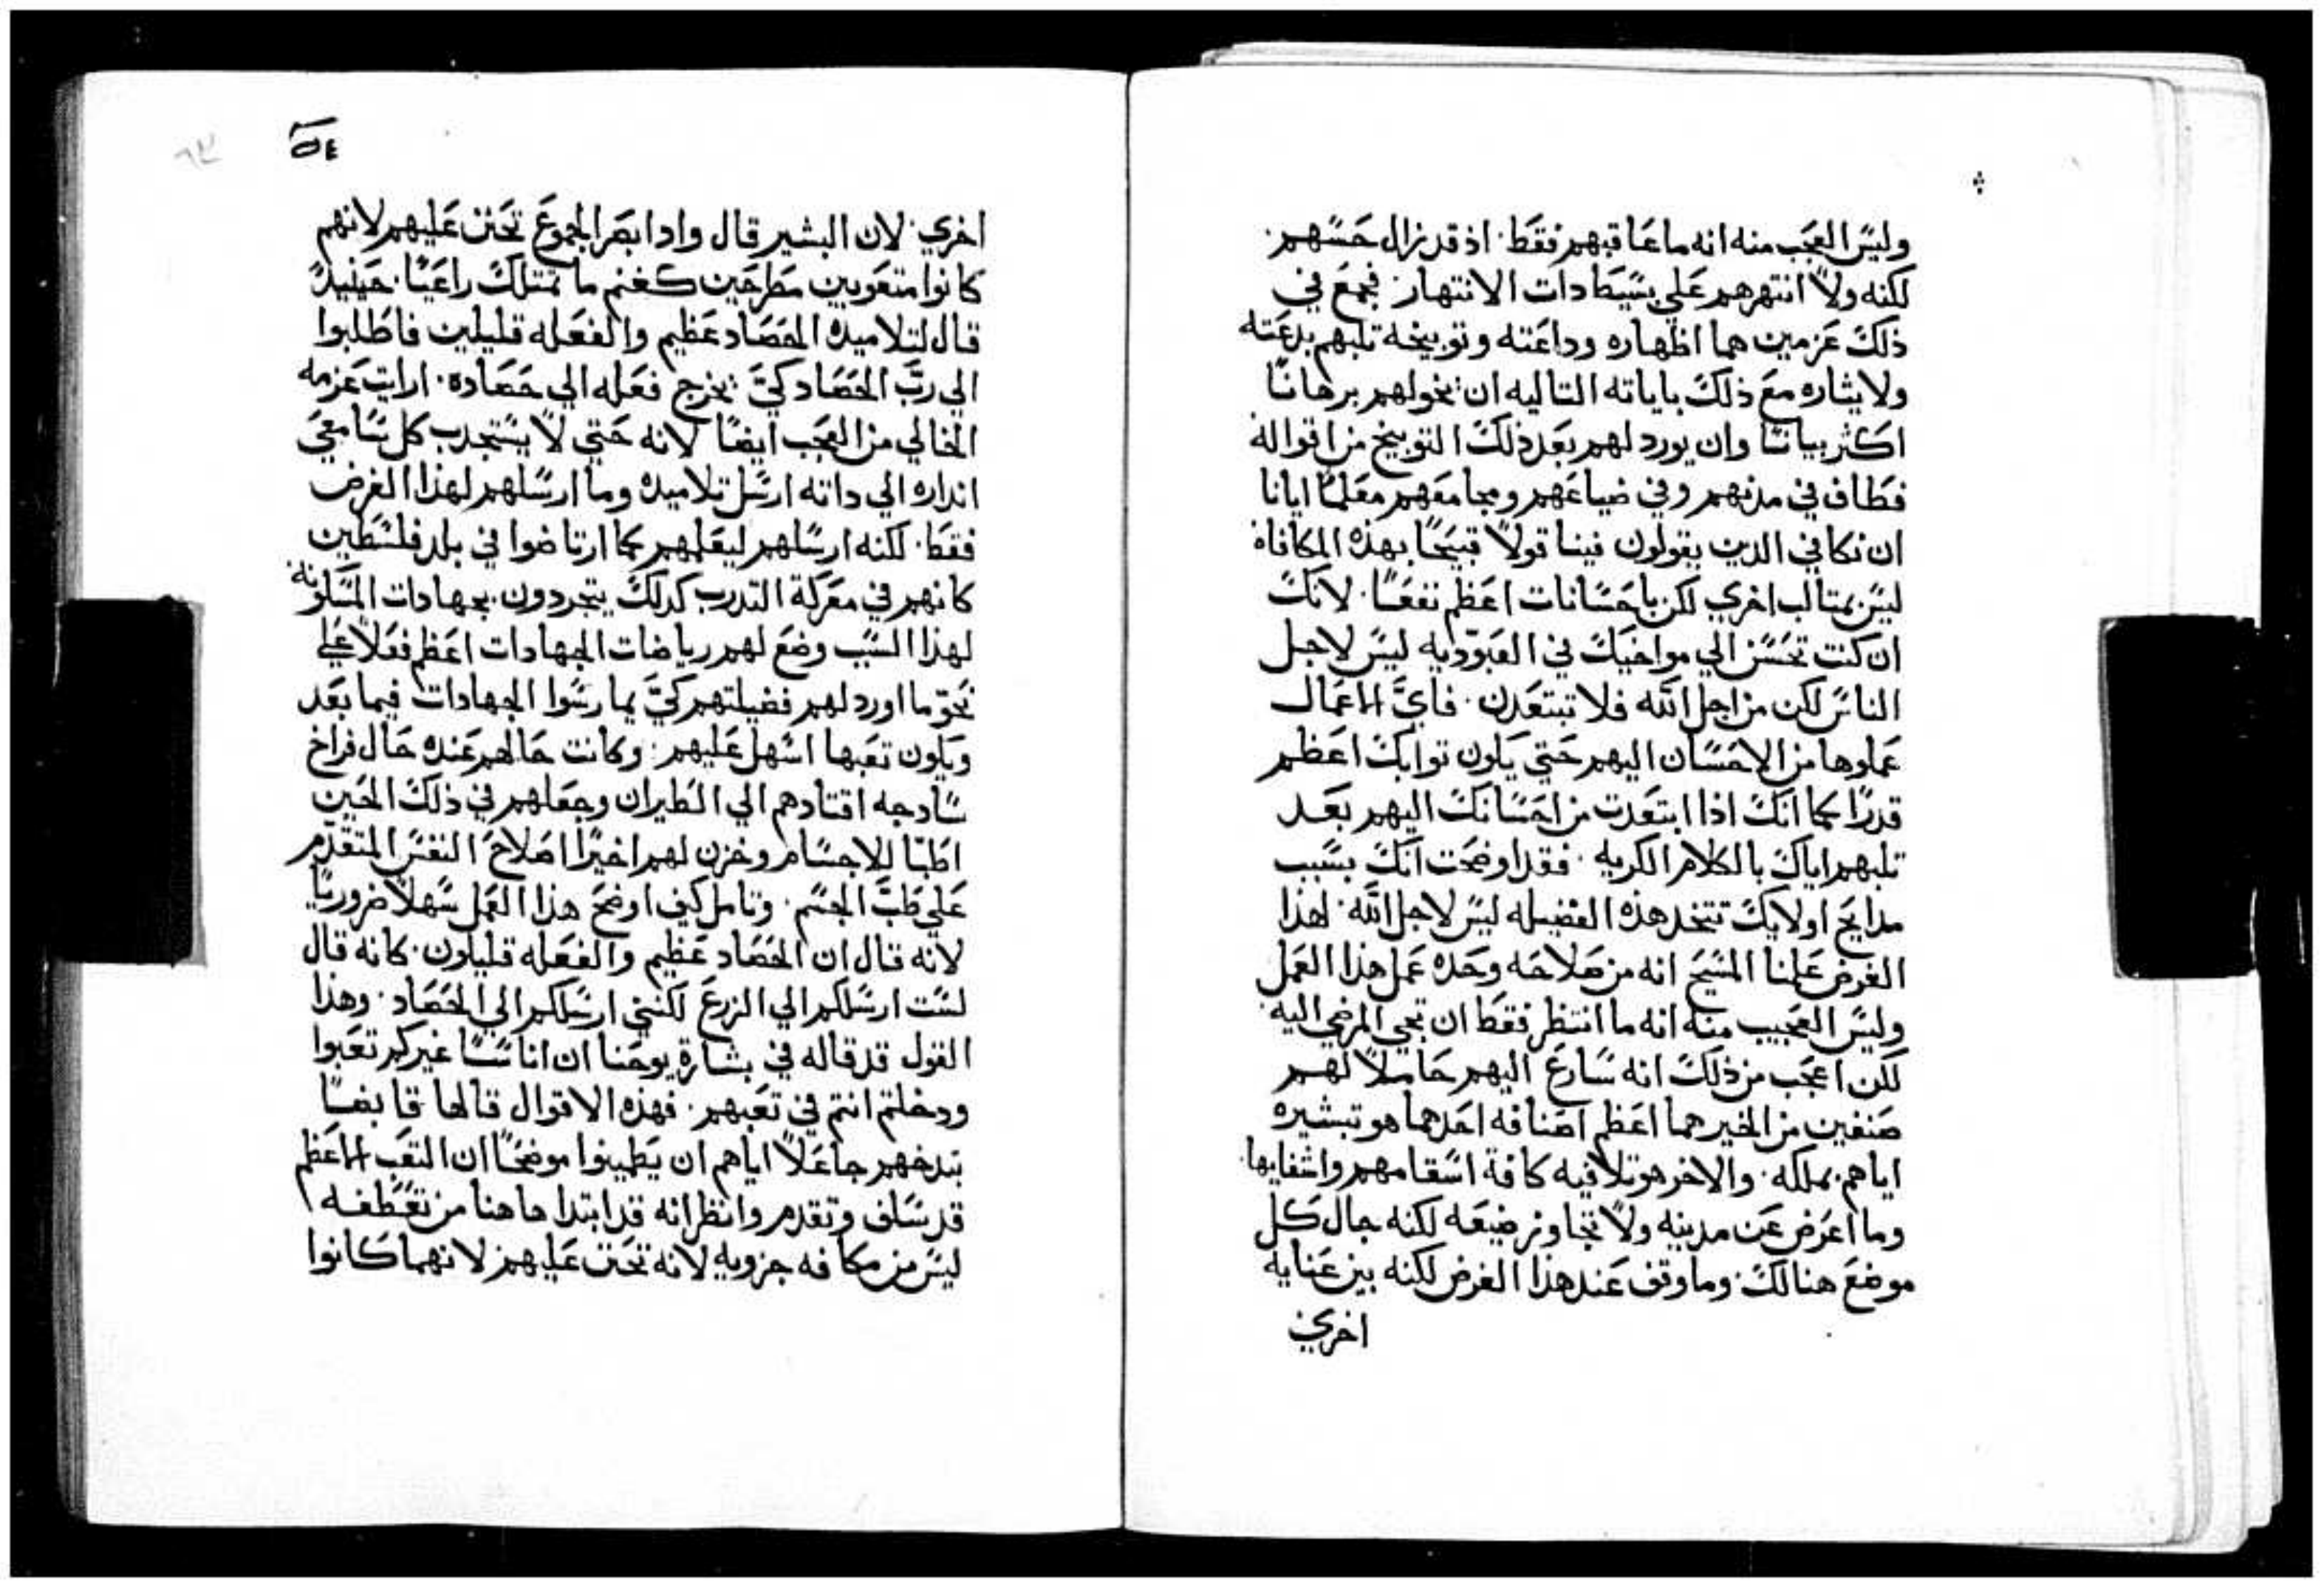 وليس العجب منه انه ما عاقبهم فقط. اذ قد زال حسهم.
لكنه ولا انتهرهم علي بسيطادات الانتهار. فجمع في
ذلك عزمين هما اظهاره وداعته وتوبيخه ثلبهم بدعته
ولايثاره مع ذلك باياته التاليه ان يخولهم برهانا
اكثر بيانا وان يورد لهم بعد ذلك التوبيخ من اقواله
فطاف في مدنهم وفي ضياعهم ومجامعهم معلما ايانا
ان نكافي الدين يقولون فينا قولا قبيحا بهذه المكافاه
ليس بمتالب اخري لكن باحسانات اعظم نفعا. لانك
ان كنت تحسن الي مواخيك في العبوديه ليس لاجل
الناس لكن من اجل الله فلا تبتعدن. فاي الاعمال
عملوها من الاحسان اليهم حتي يكون توابك اعظم
قدرا كما انك اذا ابتعدت من احسانك اليهم بعد
تلبهم اياك بالكلام الكريه. فقد اوضحت انك بسبب
مدايح اولايك تتخد هذه الفضيله ليس لاجل الله. لهذا
الغرض علمنا المسيح انه من صلاحه وحده عمل هذا العمل
وليس العجيب منه انه ما انتظر فقط ان تجي المرضي اليه.
لكن اعجب من ذلك انه سارع اليهم حاملا لهم
صنفين من الخير هما اعظم اصنافه احدهما هو تبشيره
اياهم بملكه. والاخر هو تلافيه كافة اسقامهم واشفايها.
وما اعرض عن مدينه ولا تجاوز ضيعه لكنه جال كل
موضع هنالك. وما وقف عند هذا الغرض لكنه بين عنايه
اخري
٥٤
٦٣
اخري. لان البشير قال وادا بصر الجموع تحنن عليهم لانهم
كانوا متعوبين مطرحين كغنم ما تمتلك راعيا. حينيد
قال لتلاميده الحصاد عظيم والفعله قليلين فاطلبوا
الي رب الحصاد كي يخرج فعله الي حصاده. ارايت عزمه
الخالي من العجب ايضا لانه حتي لا يستجدب كل سامعي
انداره الي داته ارسل تلاميده وما ارسلهم لهذا الغرض
فقط. لكنه ارسلهم ليعلمهم كما ارتاضوا في بلد فلسطين
كانهم في معركة التدرب كدلك يتجردون بجهادات المسكونه
لهدا السبب وضع لهم رياضات الجهادات اعظم فعلا علي
نحو ما اورد لهم فضيلتهم كي يمارسوا الجهادات فيما بعد
ويكون تعبها اسهل عليهم. وكانت حالهم عنده حال فراخ
سادجه اقتادهم الي الطيران وجعلهم في ذلك الحين
اطبا للاجسام وخزن لهم اخيرا اصلاح النفس المتقدم
علي طب الجسم. وتامل كيف اوضح هذا العمل سهلا ضروريا.
لانه قال ان الحصاد عظيم والفعله قليلون. كانه قال
لست ارسلكم الي الزرع لكنني ارسلكم الي الحصاد. وهذا
القول قد قاله في بشارة يوحنا ان اناسا غيركم تعبوا
ودخلتم انتم في تعبهم. فهذه الاقوال قالها قابضا
بدخهم جاعلا اياهم ان يطمينوا موضحا ان التعب الاعظم
قد سلف وتقدم وانظر انه قد ابتدا هاهنا من تعطفه
ليس من مكافه جزويه لانه تحنن عليهم لانهما كانوا